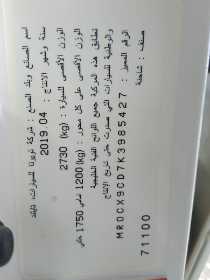 اسم الصانع وبلد الصنع : شركة تويوتا للسيارات، تايلاند
سنة وشهر الانتاج : 2019 04
الوزن الأقصى للسيارة : (kg) 2730
الوزن الأقصى على كل محور : (kg) 1200 أمامي 1750 خلفي
تطابق هذه المركبة جميع اللوائح الفنية الخليجية
والوطنية للسيارات التي صدرت حتى تاريخ الانتاج
الرقم المميز : MR0CX9CD7K3985427
صنف : شاحنة
71100